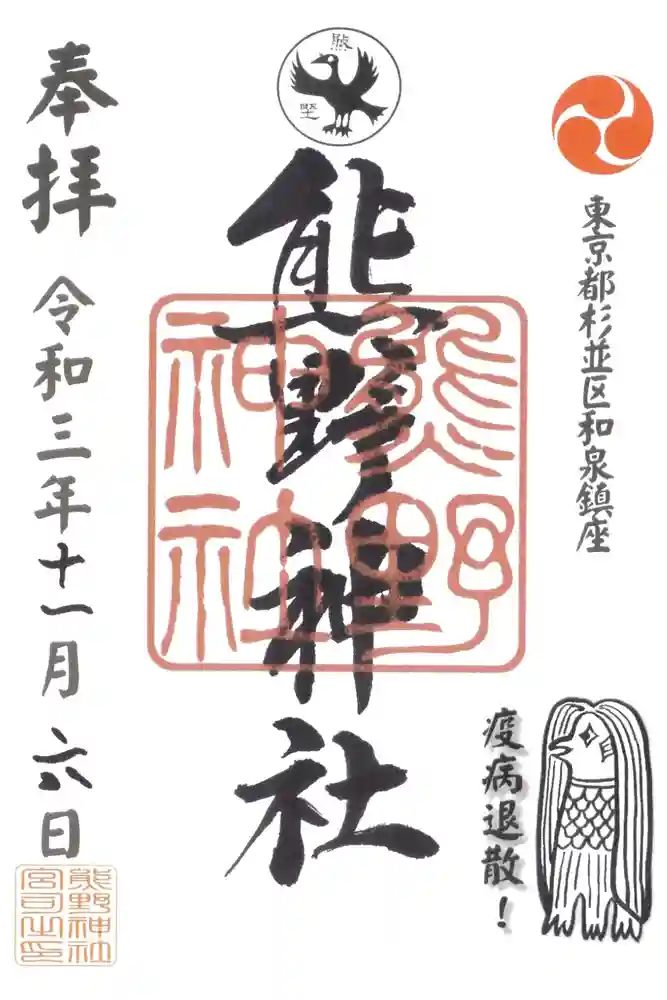 熊野
東京都杉並区和泉鎮座
疫病退散！
熊野神社
熊野
神社
奉拝
令和三年十一月六日
熊野神社
宮司之印